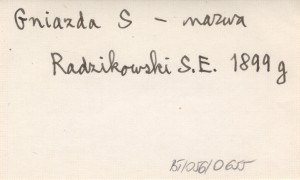 Gniazda S – nazwa
Radzikowski S.E. 1899 g
BJ/056/0655